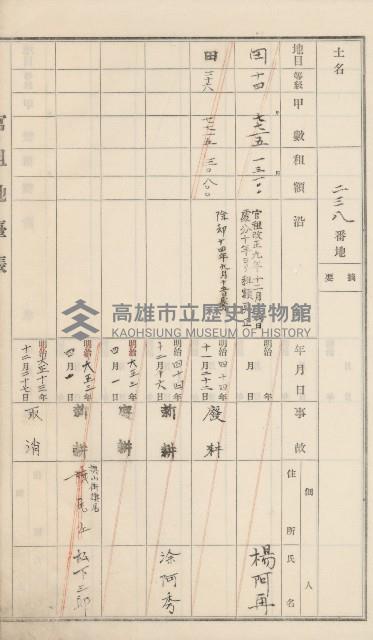 土名
二三八番地
摘要
地目 等級 甲數 租額 沿
田 十四 七七一五 一三一〇〇
田 二十六 七七一五 三〇八〇〇
官租改正九年十二月 日
處分十年ヨリ租額更正
除却十四年九月十
年月日 事故 佃人 住所 氏名
明治 年 月 日 楊阿再
明治四十四年十一月二十二日 廢耕
明治四十四年十二月十六日 新耕 涂阿秀
明治大正三年四月一日 廢耕
明治大正三年四月 日 新耕 旗山街旗尾 松下三郎
明治大正十三年十二月二十七日 取消
官租地臺帳
高雄市立歷史博物館
KAOHSIUNG MUSEUM OF HISTORY